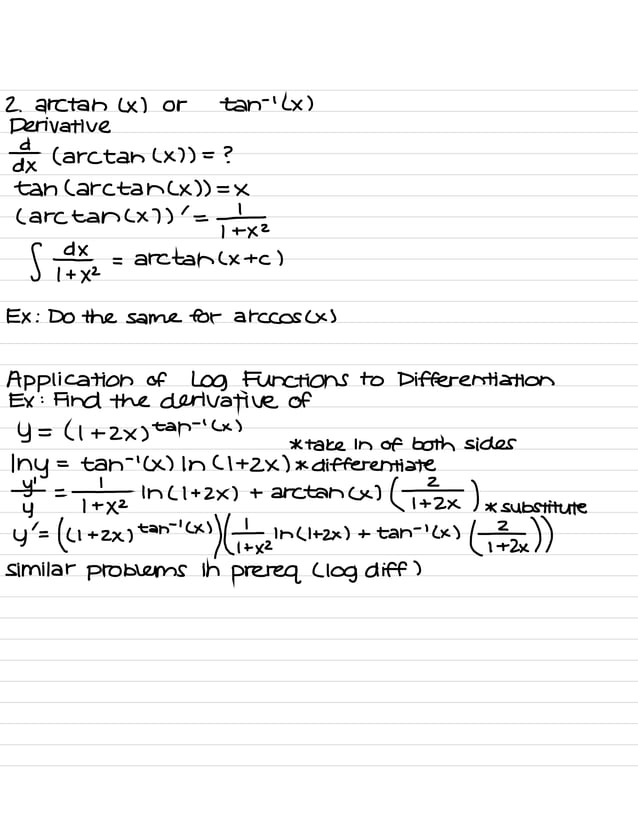 2. arctan (x) or tan⁻¹(x)
Derivative
d/dx (arctan(x)) = ?
tan(arctan(x)) = x
(arctan(x))′ = 1/(1+x²)
∫ dx/(1+x²) = arctan(x+c)
Ex: Do the same for arccos(x)
Application of Log Functions to Differentiation
Ex: Find the derivative of
y = (1+2x)^tan⁻¹(x)
*take ln of both sides
lny = tan⁻¹(x) ln(1+2x) *differentiate
y'/y = 1/(1+x²) ln(1+2x) + arctan(x) (2/(1+2x)) *substitute
y′ = ((1+2x)^tan⁻¹(x))(1/(1+x²) ln(1+2x) + tan⁻¹(x) (2/(1+2x)))
similar problems in prereq (log diff)